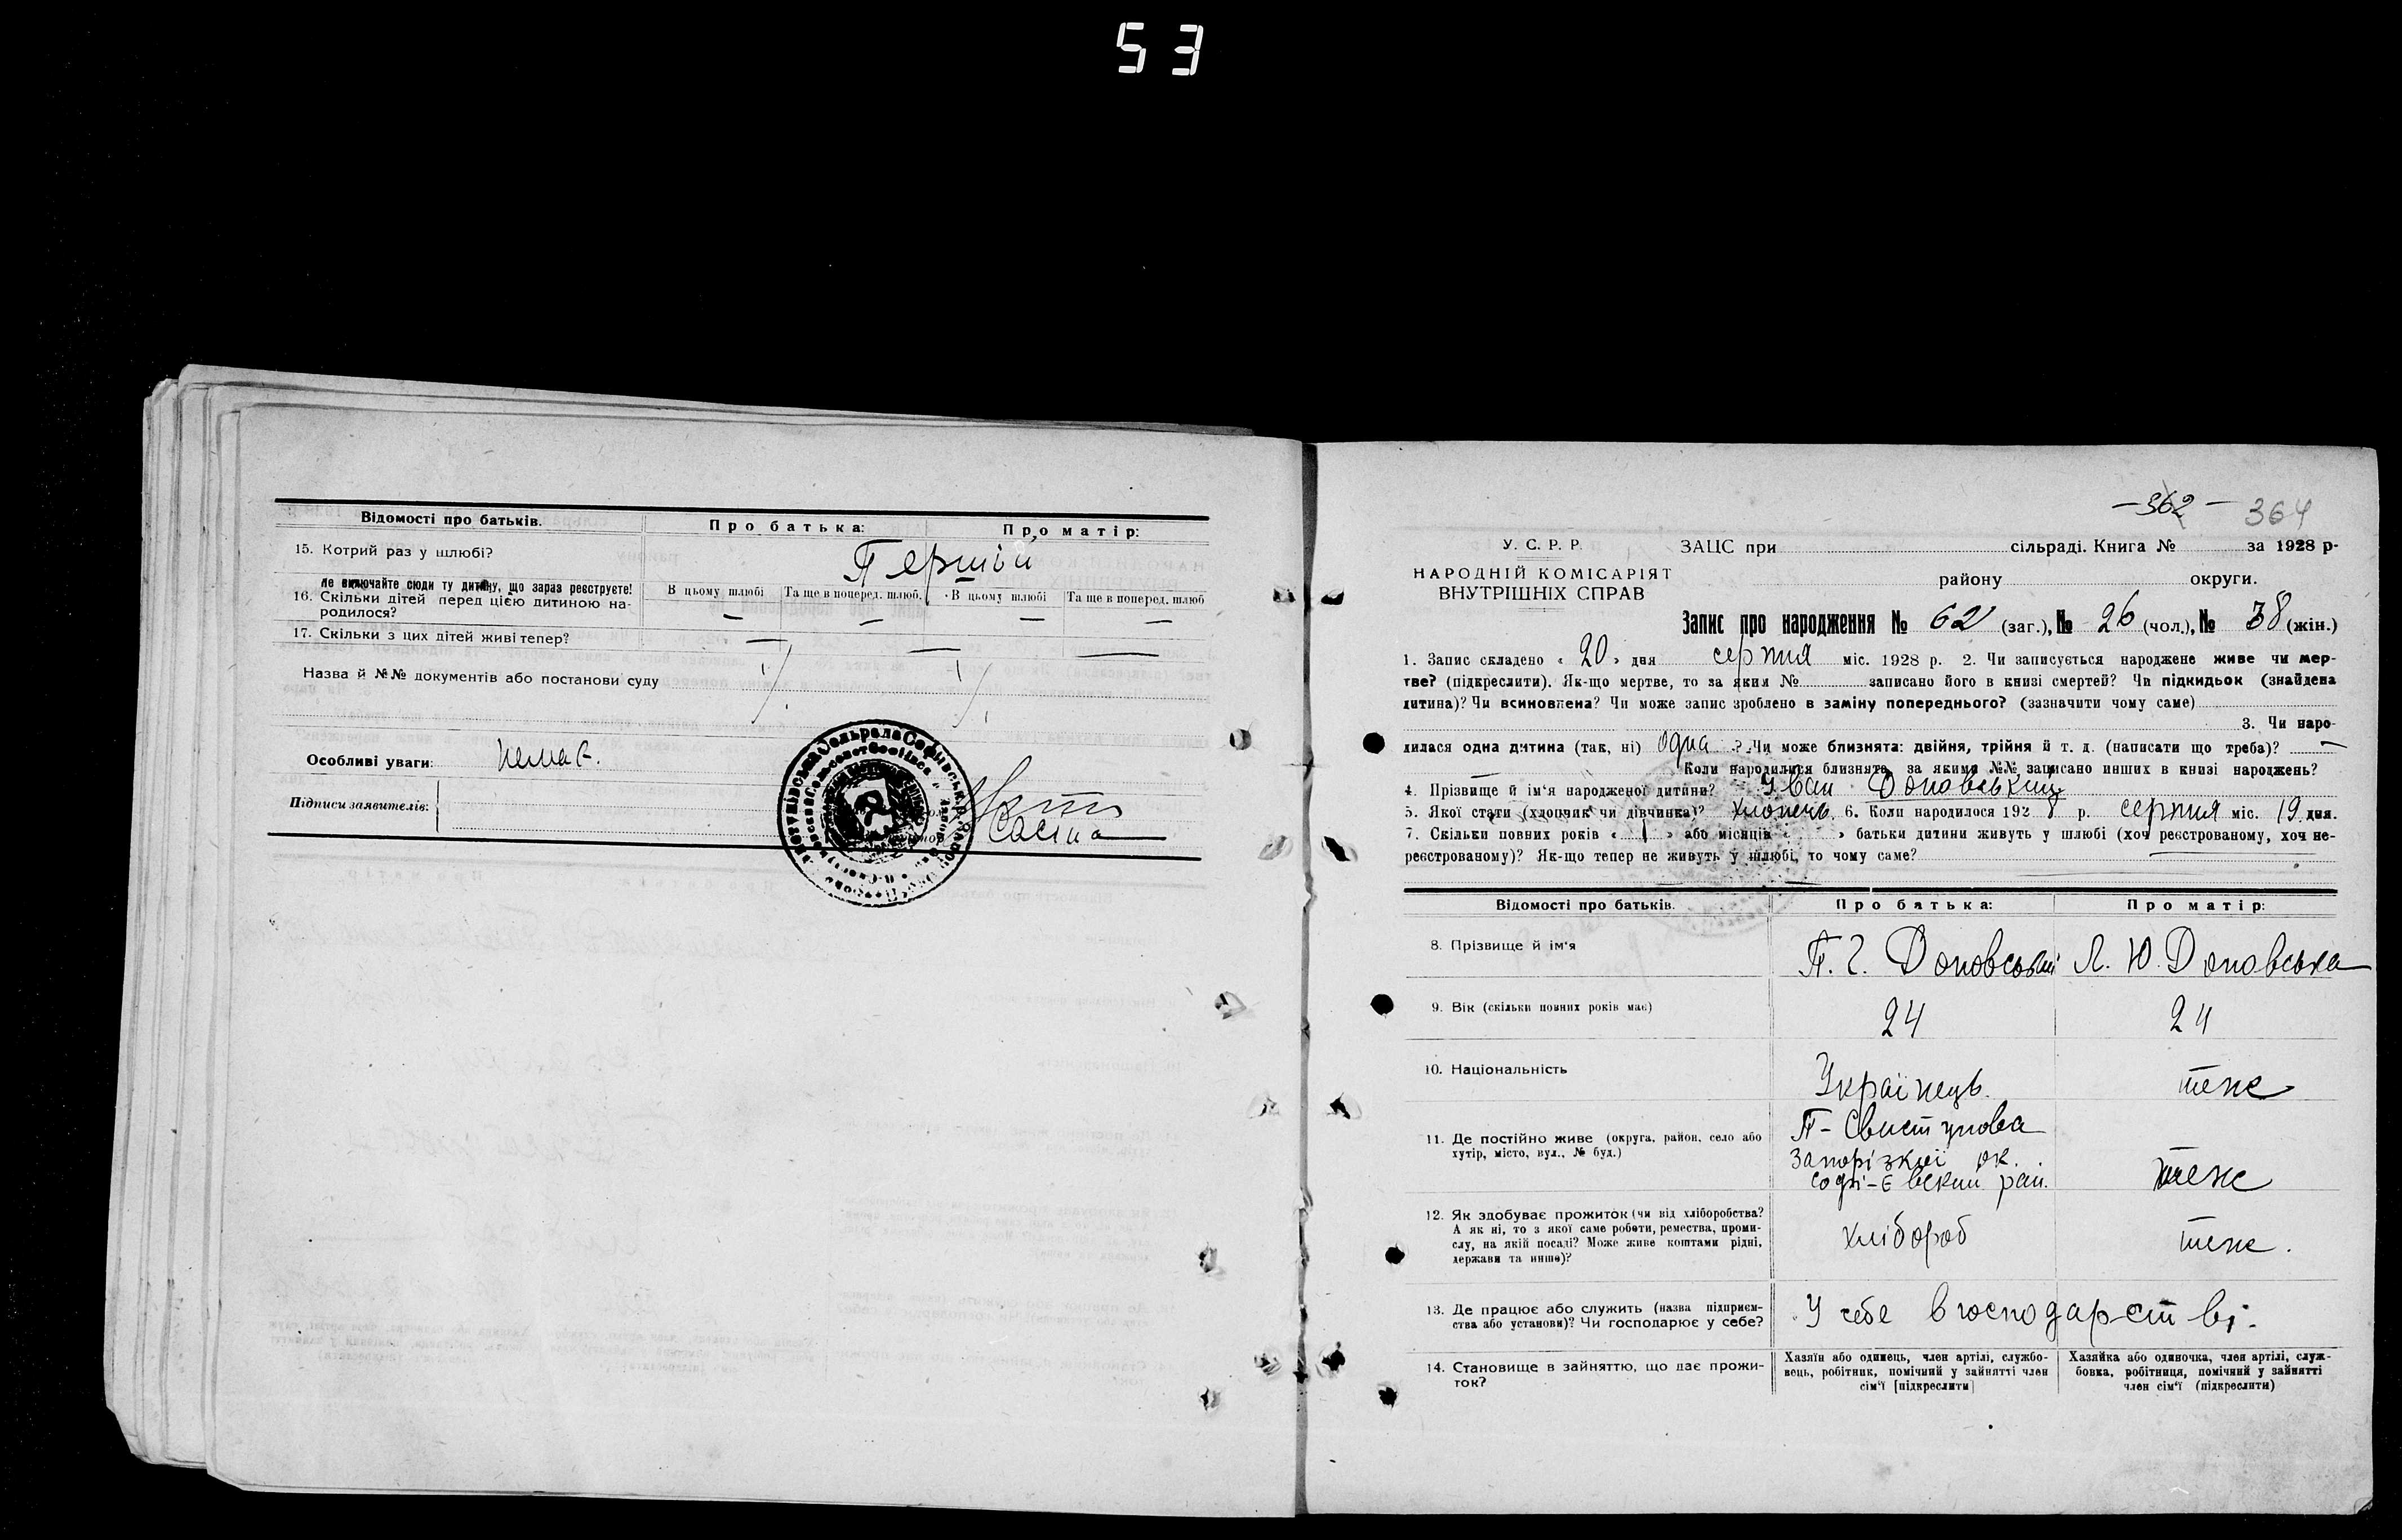 53
Відомості про батьків. Про батька: Про матір:
15. Котрий раз у шлюбі? Перший
не включайте сюди ту дитину, що зараз реєструєте!
16. Скільки дітей перед цією дитиною на-
родилося?
В цьому шлюбі Та ще в поперед. шлюб. В цьому шлюбі Та ще в поперед. шлюб
— — — —
17. Скільки з цих дітей живі тепер? — — —
Назва й №№ документів або постанови суду
Особливі уваги: немає.
Підписи заявителів:
-362- 364
У. С. Р. Р.
НАРОДНІЙ КОМІСАРІЯТ
ВНУТРІШНІХ СПРАВ
ЗАЦС при сільраді. Книга № за 1928 р-
району округи.
Запис про народження № 62 (заг.), № 26 (чол.), № 38 (жін.)
1. Запис складено « 20 » дня серпня міс. 1928 р. 2. Чи записується народжене живе чи мер-
тве? (підкреслити). Як-що мертве, то за яким № записано його в книзі смертей? Чи підкидьок (знайдена
дитина)? Чи всиновлена? Чи може запис зроблено в заміну попереднього? (зазначити чому саме)
3. Чи наро-
дилася одна дитина (так, ні) одна ? Чи може близнята: двійня, трійня й т. д. (написати що треба)? —
Коли народилися близнята, за якими №№ записано инших в книзі народжень?
4. Прізвище й ім'я народженої дитини? Іван
5. Якої стати (хлопчик чи дівчинка)? хлопець 6. Коли народилося 1928 р. серпня міс. 19 дня.
7. Скільки повних років « 1 » або місяців « » батьки дитини живуть у шлюбі (хоч реєстрованому, хоч не-
реєстрованому)? Як-що тепер не живуть у шлюбі, то чому саме?
Відомості про батьків. Про батька: Про матір:
8. Прізвище й ім'я
9. Вік (скільки повних років має) 24 24
10. Національність Українець. теж
11. Де постійно живе (округа, район, село або
хутір, місто, вул., № буд.)
П-Свистунова
Запорізкої ок.
Софі-Євский рай. теж
12. Як здобуває прожиток (чи від хліборобства?
А як ні, то з якої саме роботи, ремества, проми-
слу, на якій посаді? Може живе коштами рідні,
держави та инше)?
хлібороб теж.
13. Де працює або служить (назва підприєм-
ства або установи)? Чи господарює у себе?
У себе в господарстві.
14. Становище в зайняттю, що дає прожи-
ток?
Хазяїн або одинець, член артілі, службо-
вець, робітник, помічний у зайнятті член
сім'ї [підкреслити]
Хазяйка або одиночка, член артілі, служ-
бовка, робітниця, помічний у зайнятті
член сім'ї (підкреслити)